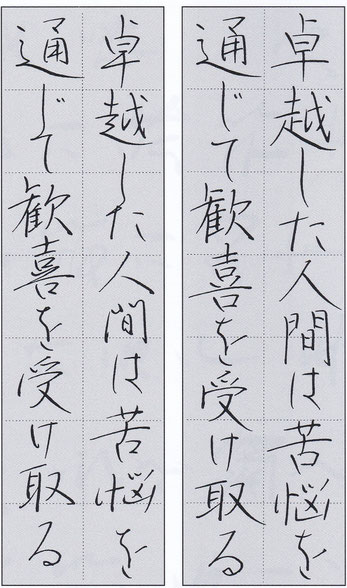 卓越した人間は苦悩を
通じて歓喜を受け取る
卓越した人間は苦悩を
通じて歓喜を受け取る